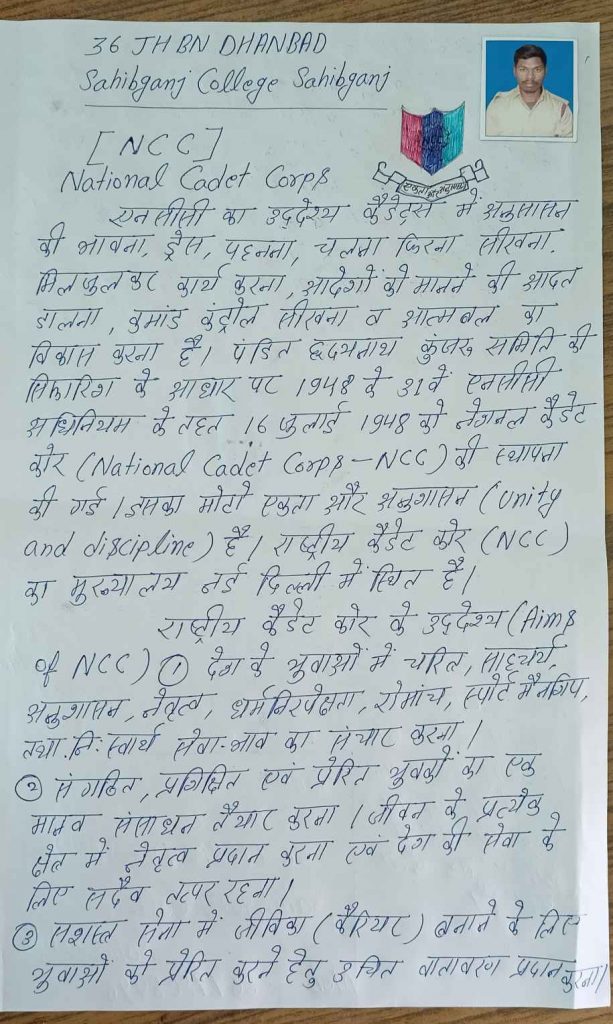 36 JH BN DHANBAD
Sahibganj College Sahibganj
[NCC]
NCC
एकता और अनुशासन
National Cadet Corps
एनसीसी का उद्देश्य कैडेट्स में अनुसासन
की भावना, ड्रेस, पहनना, चलना फिरना सीखना.
मिलजुलकर कार्य करना, आदेशों को मानने की आदत
डालना, कमांड कंट्रोल सीखना व आत्मबल का
विकास करना है। पंडित हृदयनाथ कुंजरू समिति की
सिफारिश के आधार पर 1948 के 31वें एनसीसी
अधिनियम के तहत 16 जुलाई 1948 को नेशनल कैडेट
कोर (National Cadet Corps-NCC) की स्थापना
की गई। इसका मोटो एकता और अनुशासन (Unity
and discipline) है। राष्ट्रीय कैडेट कोर (NCC)
का मुख्यालय नई दिल्ली में स्थित है।
राष्ट्रीय कैडेट कोर के उद्देश्य (Aims
of NCC) ① देश के युवाओं में चरित्र, साहचर्य,
अनुशासन, नेतृत्व, धर्मनिरपेक्षता, रोमांच, स्पोर्ट मैनशिप,
तथा नि:स्वार्थ सेवा-भाव का संचार करना।
② संगठित, प्रशिक्षित एवं प्रेरित युवकों का एक
मानव संसाधन तैयार करना। जीवन के प्रत्येक
क्षेत्र में नेतृत्व प्रदान करना एवं देश की सेवा के
लिए सदैव तत्पर रहना।
③ सशस्त्र सेना में जीविका (कैरियर) बनाने के लिए
युवाओं को प्रेरित करने हेतु उचित वातावरण प्रदान करना।